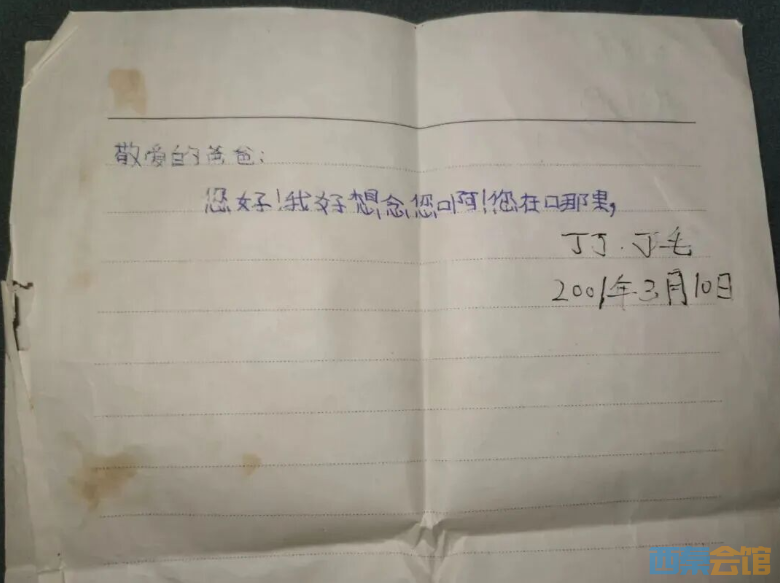 敬爱的爸爸:
您好!我好想念您啊!您在哪里,
丁丁.丁毛
2001年3月10日
西祠会馆